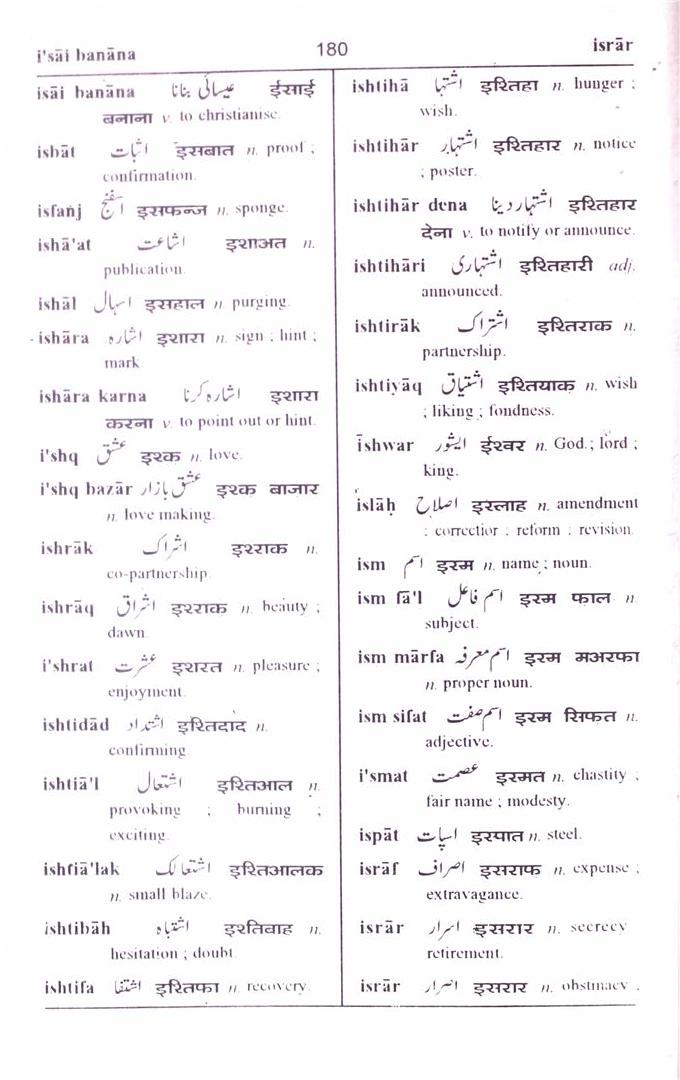 i'sāi banāna
180
isrār
isāi banāna عیسائی بنانا ईसाई
बनाना v. to christianise.
isbāt اثبات इसबात n. proof ;
confirmation.
isfanj اسفنج इसफन्ज n. sponge.
ishā'at اشاعت इशाअत n.
publication.
ishāl اسہال इसहाल n. purging.
ishāra اشارہ इशारा n. sign ; hint ;
mark
ishāra karna اشارہ کرنا इशारा
करना v. to point out or hint.
i'shq عشق इश्क n. love.
i'shq bazār عشق بازار इश्क बाजार
n. love making.
ishrāk اشراک इश्राक n.
co-partnership.
ishrāq اشراق इश्राक n. beauty ;
dawn.
i'shrat عشرت इशरत n. pleasure ;
enjoyment.
ishtidād اشتداد इश्तिदाद n.
confirming.
ishtiā'l اشتعال इश्तिआल n.
provoking ; burning ;
exciting.
ishtiā'lak اشتعالک इश्तिआलक
n. small blaze.
ishtibāh اشتباہ इश्तिबाह n.
hesitation ; doubt.
ishtifa اشتفا इश्तिफा n. recovery.
ishtihā اشتہا इश्तिहा n. hunger ;
wish.
ishtihār اشتہار इश्तिहार n. notice
; poster.
ishtihār dena اشتہار دینا इश्तिहार
देना v. to notify or announce.
ishtihāri اشتہاری इश्तिहारी adj.
announced.
ishtirāk اشتراک इश्तिराक n.
partnership.
ishtiyāq اشتیاق इश्तियाक n. wish
; liking ; fondness.
īshwar ایشور ईश्वर n. God.; lord ;
king.
islāḥ اصلاح इस्लाह n. amendment
; correctior ; reform ; revision.
ism اسم इस्म n. name ; noun.
ism fā'l اسم فاعل इस्म फाल n.
subject.
ism mārfa اسم معرفہ इस्म मअरफा
n. proper noun.
ism sifat اسم صفت इस्म सिफत n.
adjective.
i'smat عصمت इस्मत n. chastity ;
fair name ; modesty.
ispāt اسپات इस्पात n. steel.
isrāf اصراف इसराफ n. expense ;
extravagance.
isrār اسرار इसरार n. secrecy
retirement.
isrār اصرار इसरार n. obstinacy .